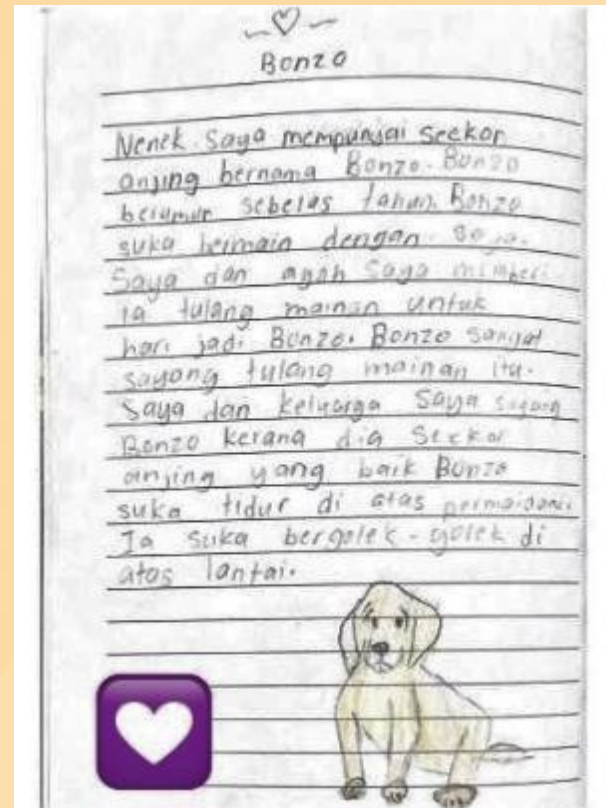 Bonzo
Nenek saya mempunyai seekor
anjing bernama Bonzo. Bonzo
berumur sebelas tahun. Bonzo
suka bermain dengan saya.
Saya dan ayah saya memberi
ia tulang mainan untuk
hari jadi Bonzo. Bonzo sangat
sayang tulang mainan itu.
Saya dan keluarga saya sayang
Bonzo kerana dia seekor
anjing yang baik Bonzo
suka tidur di atas permaidani.
Ia suka bergolek-golek di
atas lantai.